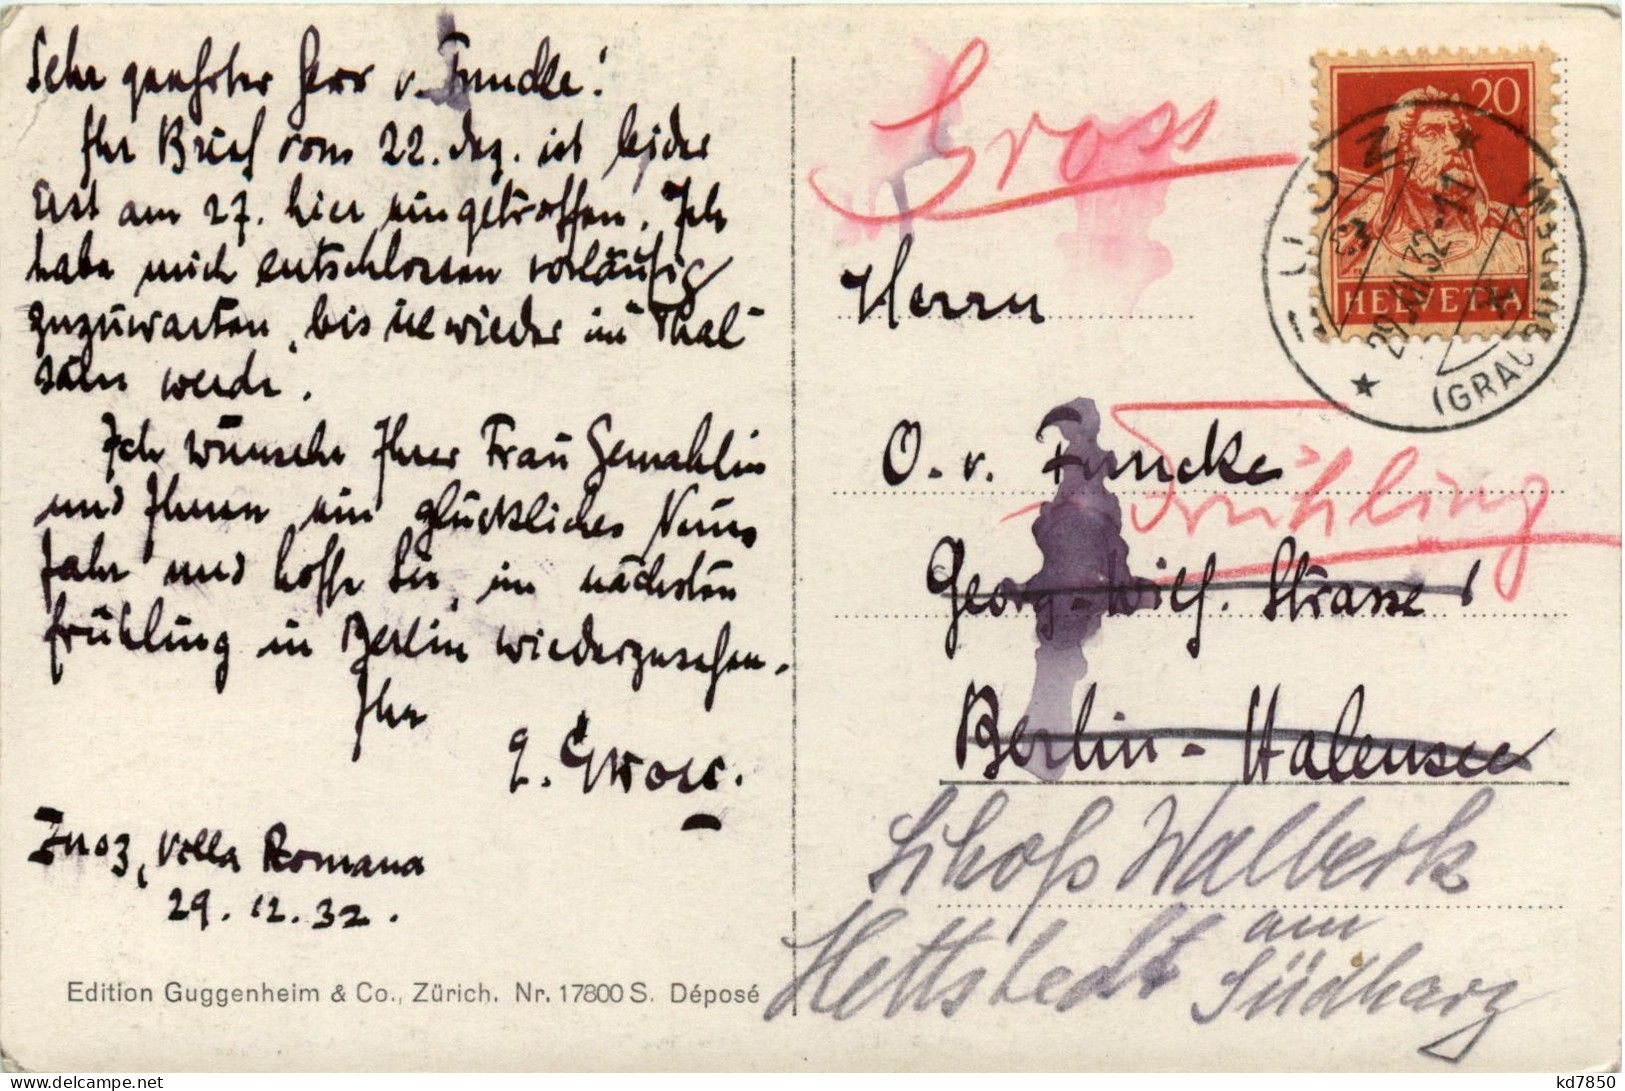 Sehr geehrter Herr v. Funcke!
Ihr Brief vom 22. Dez. ist leider
erst am 27. hier eingetroffen. Ich
habe mich entschlossen vorläufig
zuzuwarten, bis ich wieder im Thal
sein werde.
Ich wünsche Ihrer Frau Gemahlin
und Ihnen ein glückliches Neues
Jahr und hoffe Sie, im nächsten
Frühling in Berlin wiederzusehen.
Ihr
Gross.
Zuoz, Villa Romana
29. 12. 32.
Edition Guggenheim & Co., Zürich. Nr. 17800 S. Déposé
Gross
20
HELVETIA
ZUOZ
29.XII.32.-11
(GRAUBÜNDEN)
Herrn
O. v. Funcke
Frühling
Georg-Wilh. Strasse 1
Berlin-Halensee
Schloß Walbeck
am
Hettstedt Südharz
kd7850